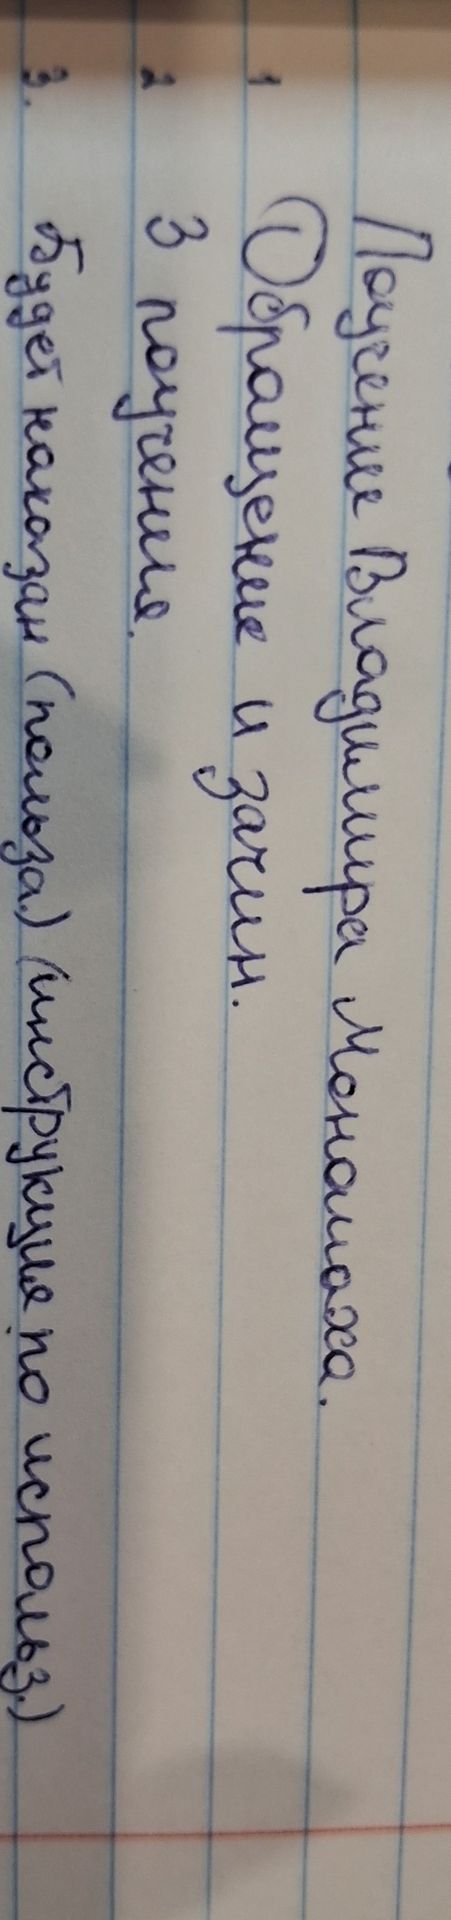 Поучение Владимира Мономаха.
1 Обращение и зачин.
2 3 поучения.
3. Будет наказан (польза.) (инструкция по использ.)